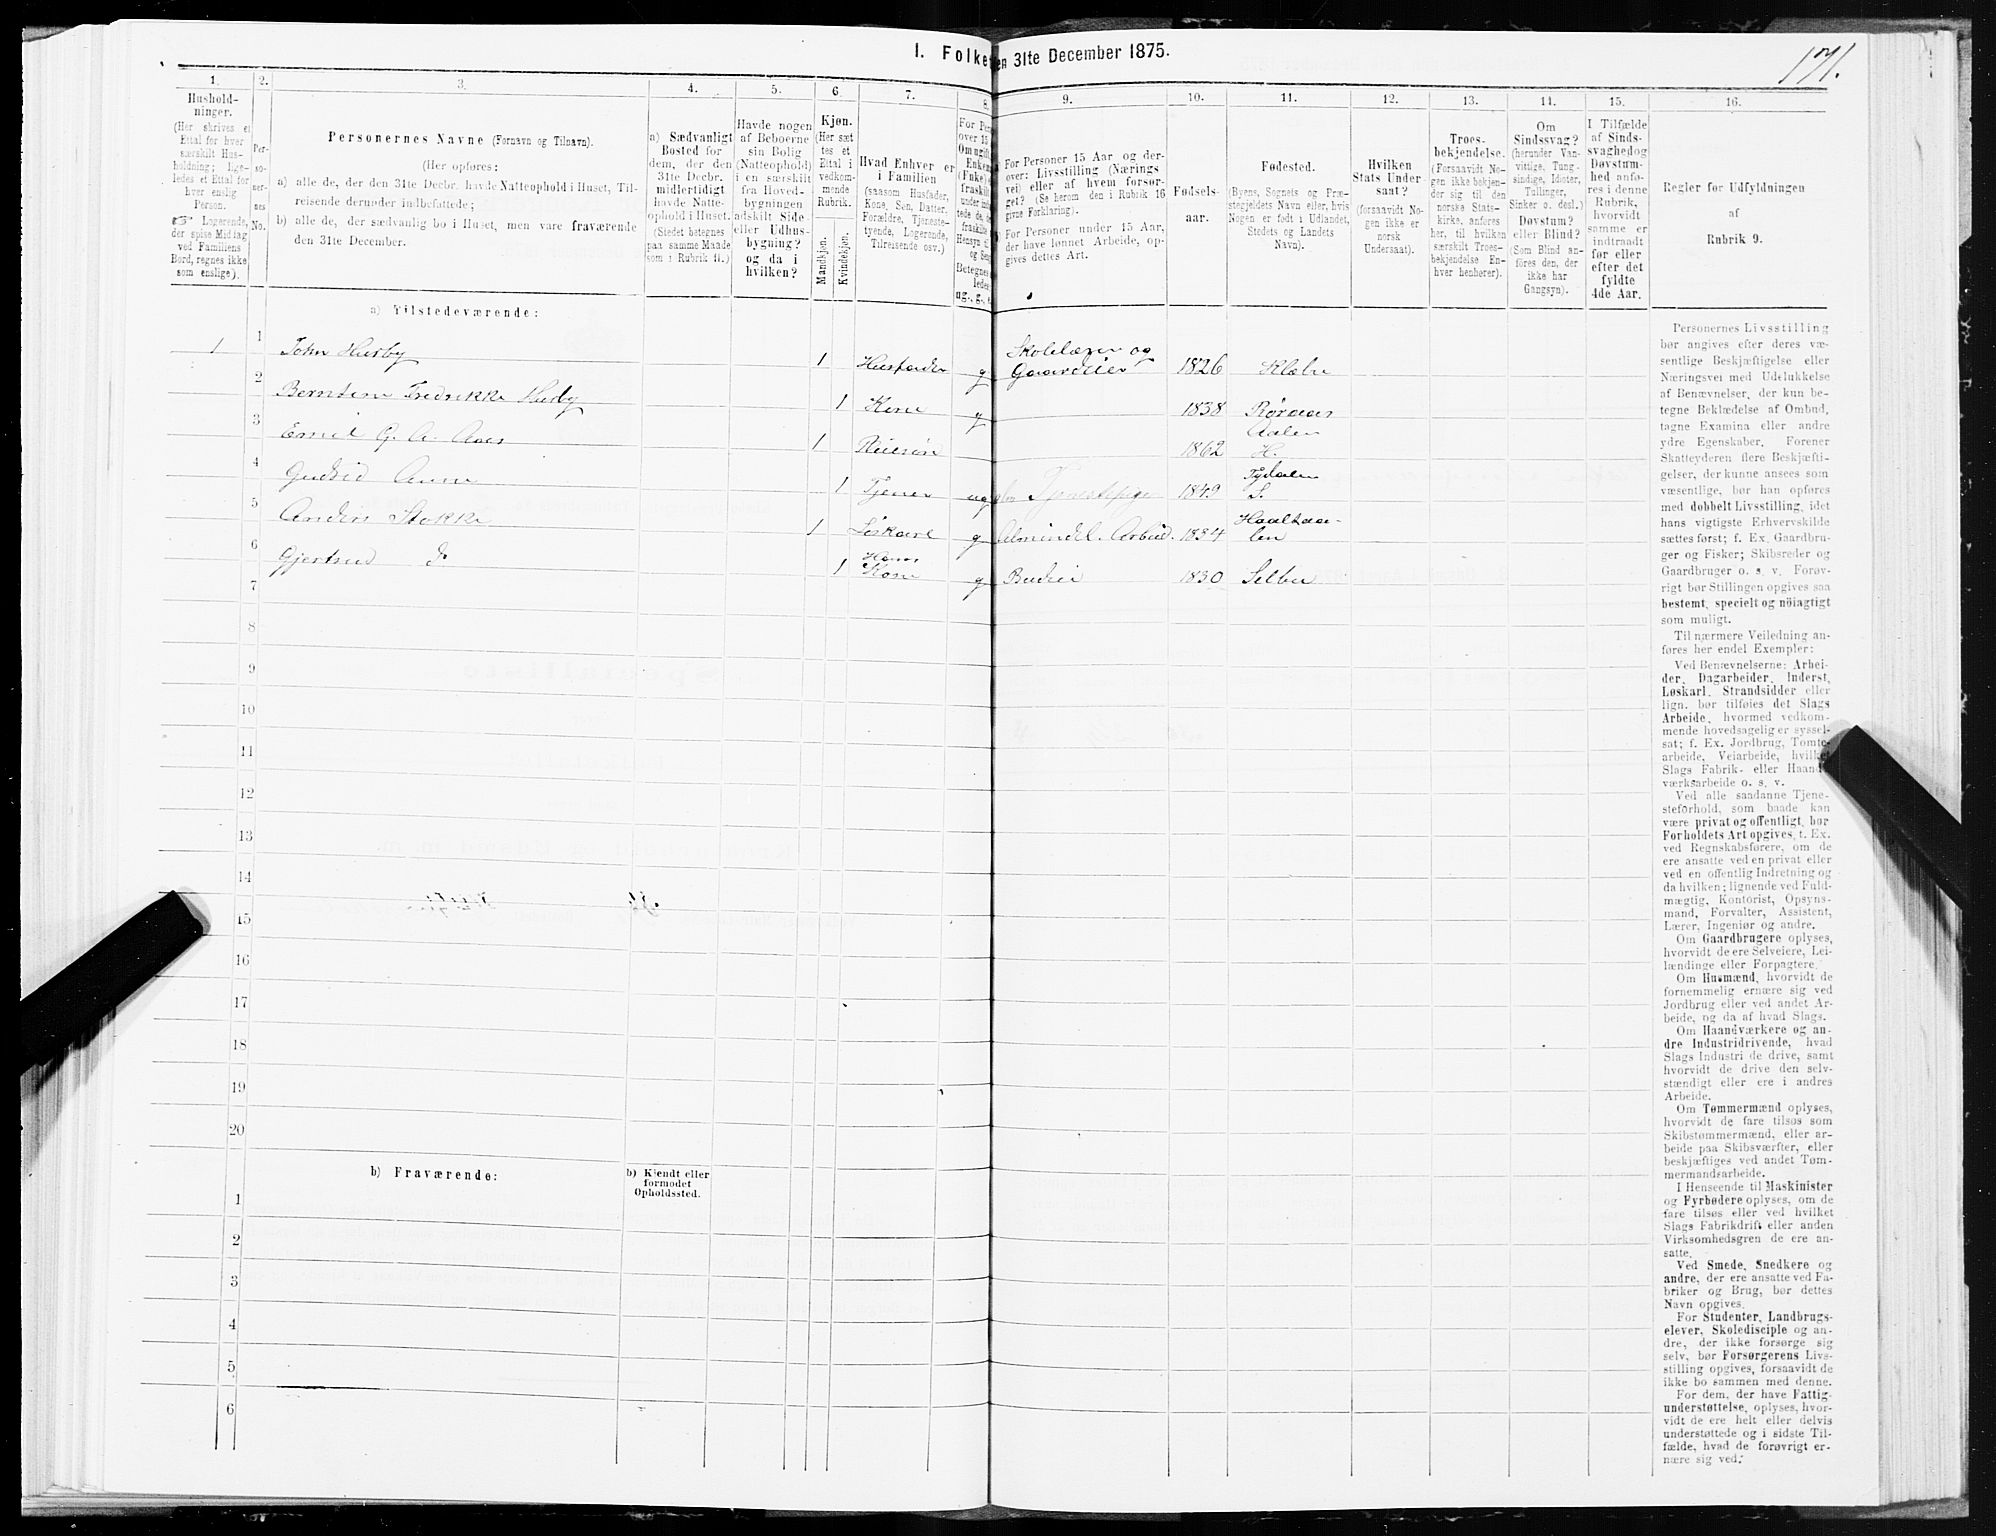 I. Folke en 31te December 1875.
171.
1. 2. 3. 4. 5. 6. 7. 8. 9. 10. 11. 12. 13. 14. 15. 16.
Hushold-
ninger.
(Her skrives et
Ettal for hver
særskilt Hus-
holdning; lige-
ledes et Ettal for
hver enslig
Person.
Logerende,
der spise Middag
ved Familiens
Bord, regnes ikke
som enslige).
Per-
so-
ner-
nes
No.
Personernes Navne (Fornavn og Tilnavn).
(Her opføres:
a) alle de, der den 31te Decbr. havde Natteophold i Huset, Til-
reisende derunder indbefattede;
b) alle de, der sædvanlig bo i Huset, men vare fraværende
den 31te December.
a) Sædvanligt
Bosted for
dem, der den
31te Decbr.
midlertidigt
havde Natte-
ophold i Huset.
(Stedet betegnes
paa samme Maade
som i Rubrik 11.)
Havde nogen
af Beboerne
sin Bolig
(Natteophold)
i en særskilt
fra Hoved-
bygningen
adskilt Side-
eller Udhus-
bygning?
og da i
hvilken?
Kjøn.
(Her sæt
tes et
Ettal i
vedkom-
mende
Rubrik.
Mandkjøn.
Kvindekjøn.
Hvad Enhver er
i Familien
(saasom Husfader,
Kone, Søn, Datter,
Forældre, Tjeneste-
tyende, Logerende,
Tilreisende osv.)
For Per
over 15
Om ugift
Enkem
(Fuke)
fraskilt
under
tede de,
fraskilte
Hensyn til
og Sen
Betegnes
ledes
ug., g., e.
For Personer 15 Aar og der-
over: Livsstilling (Nærings
vei) eller af hvem forsør-
get? (Se herom den i Rubrik 16
givne Forklaring).
For Personer under 15 Aar,
der have lønnet Arbeide, op-
gives dettes Art.
Fødsels-
aar.
Fødested.
(Byens, Sognets og Præ-
stegjeldets Navn eller, hvis
Nogen er født i Udlandet,
Stedets og Landets
Navn).
Hvilken
Stats Under-
saat?
(forsaavidt No-
gen ikke er
norsk
Undersaat).
Troes-
bekjendelse.
(Forsaavidt No-
gen ikke bekjen-
der sig til den
norske Stats-
kirke, anføres
her, til hvilken
særskilt Troes-
bekjendelse En-
hver henhører).
Om
Sindssvag?
(herunder Van-
vittige, Tung-
sindige, Idioter,
Tullinger,
Sinker o. desl.)
Døvstum?
eller Blind?
(Som Blind an-
føres den, der
ikke har
Gangsyn).
I Tilfælde
af Sinds-
svaghed og
Døvstum-
hed anfø-
res i denne
Rubrik,
hvorvidt
samme er
indtraadt
før eller
efter det
fyldte
4de Aar.
Regler for Udfyldningen
af
Rubrik 9.
a) Tilstedeværende:
1 1 John Husby 1 Husfader g Skolelærer og Gaardeier 1826 Klæbu
2 Berntine Fredrikke Husby 1 Kone g 1838 Røraas
3 Emil G. A. Aas 1 Pleiesøn 1862 Aalen H.
4 Gudrid Aune 1 Tjener ug Tjenestepige 1849 Tydalen S.
5 Anders Stokke 1 Løskarl g Almindel. Arbeid. 1834 Haaltaa-
len
6 Gjertrud do 1 Hans Kone g Budeie 1830 Selbu
7
8
9
10
11
12
13
14
15
16
17
18
19
20
b) Fraværende:
b) Kjendt eller
formodet
Opholdssted.
1
2
3
4
5
6
Personernes Livsstilling
bør angives efter deres væ-
sentlige Beskjæftigelse eller
Næringsvei med Udelukkelse
af Benævnelser, der kun be-
tegne Beklædelse af Ombud,
tagne Examina eller andre
ydre Egenskaber. Forener
Skatteyderen flere Beskjæfti-
gelser, der kunne ansees som
væsentlige, bør han opføres
med dobbelt Livsstilling, idet
hans vigtigste Erhvervskilde
sættes først; f. Ex. Gaardbru-
ger og Fisker; Skibsreder og
Gaardbruger o. s. v. Forøv-
rigt bør Stillingen opgives saa
bestemt, specielt og nøiagtigt
som muligt.
Til nærmere Veiledning an-
føres her endel Exempler:
Ved Benævnelserne: Arbei-
der, Dagarbeider, Inderst,
Løskarl, Strandsidder eller
lign. bør tilføies det Slags
Arbeide, hvormed vedkom-
mende hovedsagelig er syssel-
sat; f. Ex. Jordbrug, Tomte-
arbeide, Veiarbeide, hvilket
Slags Fabrik- eller Haand-
værksarbeide o. s. v.
Ved alle saadanne Tjene-
steforhold, som baade kan
være privat og offentligt, bør
Forholdets Art opgives, t. Ex.
ved Regnskabsførere, om de
ere ansatte ved en privat eller
ved en offentlig Indretning og
da hvilken; lignende ved Fuld-
mægtig, Kontorist, Opsyns-
mand, Forvalter, Assistent,
Lærer, Ingeniør og andre.
Om Gaardbrugere oplyses,
hvorvidt de ere Selveiere, Lei-
lændinge eller Forpagtere.
Om Husmænd, hvorvidt de
fornemmelig ernære sig ved
Jordbrug eller ved andet Ar-
beide, og da af hvad Slags.
Om Haandværkere og an-
dre Industridrivende, hvad
Slags Industri de drive, samt
hvorvidt de drive den selv-
stændigt eller ere i andres
Arbeide.
Om Tømmermænd oplyses,
hvorvidt de fare tilsøs som
Skibstømmermænd, eller ar-
beide paa Skibsværfter, eller
beskjæftiges ved andet Tøm-
mermandsarbeide.
I Henseende til Maskinister
og Fyrbødere oplyses, om de
fare tilsøs eller ved hvilket
Slags Fabrikdrift eller anden
Virksomhedsgren de ere an-
satte.
Ved Smede, Snedkere og
andre, der ere ansatte ved Fa-
briker og Brug, bør dettes
Navn opgives.
For Studenter, Landbrugs-
elever, Skoledisciple og an-
dre, der ikke forsørge sig
selv, bør Forsørgerens Livs-
stilling opgives, forsaavidt de
ikke bo sammen med denne.
For dem, der have Fattig-
understøttelse, oplyses, hvor-
vidt de ere helt eller delvis
understøttede og i sidste Til-
fælde, hvad de forøvrigt er-
nære sig ved.